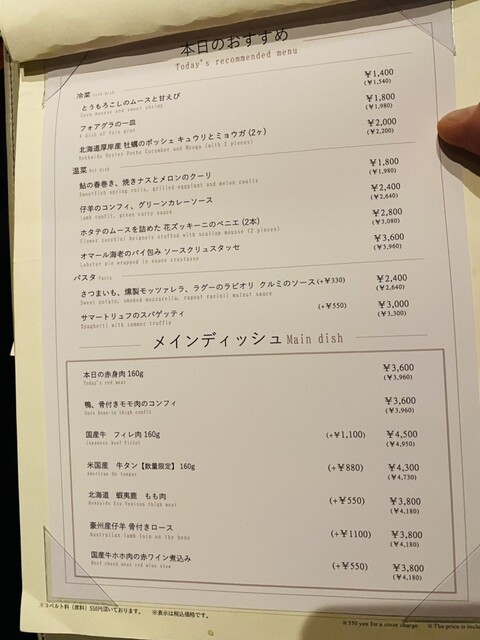 本日のおすすめ
Today's recommended menu
冷菜 Cold dish
とうもろこしのムースと甘えび ¥1,400
Corn mousse and sweet shrimp (¥1,540)
フォアグラの一皿 ¥1,800
A dish of foie gras (¥1,980)
北海道厚岸産 牡蠣のポッシェ キュウリとミョウガ (2ヶ) ¥2,000
Hokkaido Oyster Poche Cucumber and Myoga (with 2 pieces) (¥2,200)
温菜 Hot dish
鮎の春巻き、焼きナスとメロンのクーリ ¥1,800
Sweetfish spring rolls, grilled eggplant and melon coulis (¥1,980)
仔羊のコンフィ、グリーンカレーソース ¥2,400
Lamb confit, green curry sauce (¥2,640)
ホタテのムースを詰めた 花ズッキーニのベニエ (2本) ¥2,800
Flower zucchini beignets stuffed with scallop mousse (2 pieces) (¥3,080)
オマール海老のパイ包み ソースクリュスタッセ ¥3,600
Lobster pie wrapped in sauce crustasse (¥3,960)
パスタ Pasta
さつまいも、燻製モッツァレラ、ラグーのラビオリ クルミのソース (+¥330) ¥2,400
Sweet potato, smoked mozzarella, ragout ravioli walnut sauce (¥2,640)
サマートリュフのスパゲッティ (+¥550) ¥3,000
Spaghetti with summer truffle (¥3,300)
メインディッシュ Main dish
本日の赤身肉 160g ¥3,600
Today's red meat (¥3,960)
鴨、骨付きモモ肉のコンフィ ¥3,600
Duck bone-in thigh confit (¥3,960)
国産牛 フィレ肉 160g (+¥1,100) ¥4,500
Japanese beef fillet (¥4,950)
米国産 牛タン【数量限定】 160g (+¥880) ¥4,300
American Ox tongue (¥4,730)
北海道 蝦夷鹿 もも肉 (+¥550) ¥3,800
Hokkaido Ezo Venison thigh meat (¥4,180)
豪州産仔羊 骨付きロース (+¥1100) ¥3,800
Australian lamb loin on the bone (¥4,180)
国産牛ホホ肉の赤ワイン煮込み (+¥550) ¥3,800
Beef cheek meat red wine stew (¥4,180)
※クベルト料 (席料) 550円頂いております。 ※表示は税込価格です。
※ 550 yen for a cover charge. ※ The price is inclu